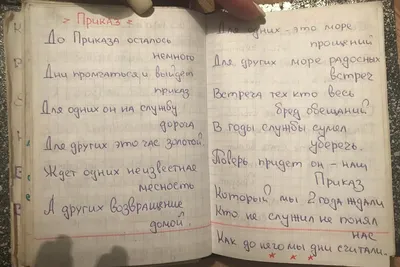 > Приказ <
До Приказа осталось
немного
Дни промчаться и выйдет
приказ
Для одних он на службу
дорога
Для других это час золотой.
Ждет одних неизвестная
месность
А других возвращение
домой.
Для одних - это море
прощений
Для других море радосных
встреч
Встреча тех кто весь
бред обещаний
В годы службы сумел
уберечь.
Поверь придет он - наш
Приказ
Который мы 2 года ждали
Кто не служил не понял
нас
Как до него мы дни считали.